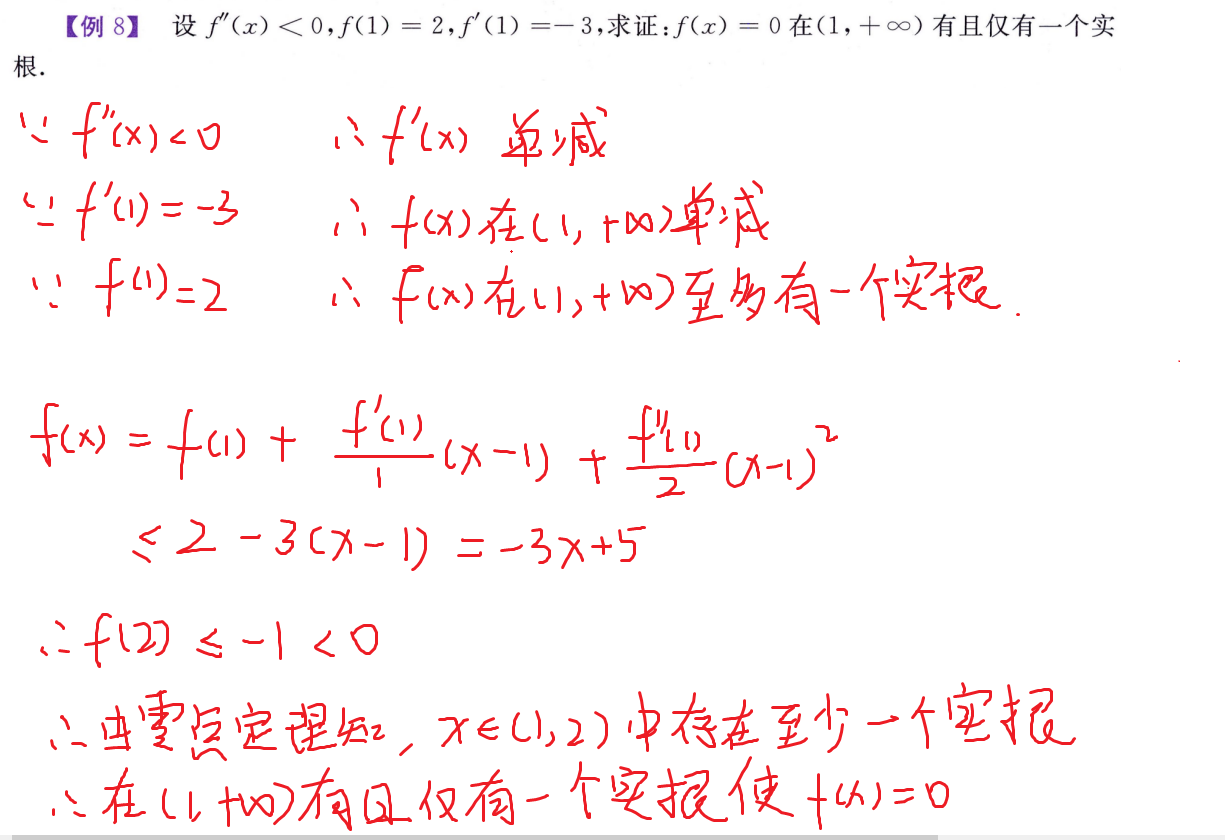 【例 8】 设 f″(x) < 0, f(1) = 2, f′(1) = −3, 求证: f(x) = 0 在(1, +∞) 有且仅有一个实
根.
∵ f″(x) < 0 ∴ f′(x) 单减
∵ f′(1) = −3 ∴ f(x) 在 (1, +∞) 单减
∵ f(1) = 2 ∴ f(x) 在 (1, +∞) 至多有一个实根.
f(x) = f(1) + f′(1)/1 (x−1) + f″(1)/2 (x−1)²
≤ 2 − 3(x−1) = −3x+5
∴ f(2) ≤ −1 < 0
∴ 由零点定理知, x∈(1,2) 中存在至少一个实根
∴ 在 (1, +∞) 有且仅有一个实根使 f(x) = 0